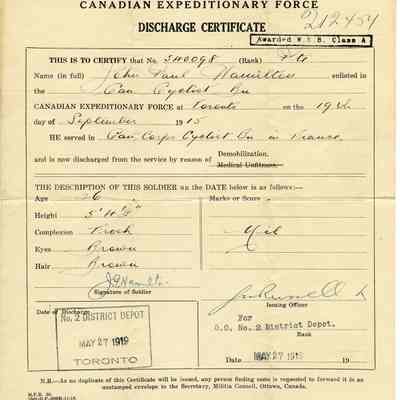 CANADIAN EXPEDITIONARY FORCE
DISCHARGE CERTIFICATE
212454
Awarded W.S.B. Class A
THIS IS TO CERTIFY that No. 540098 (Rank) Pte
Name (in full) John Paul Hamilton enlisted in
the Can Cyclist Bn
CANADIAN EXPEDITIONARY FORCE at Toronto on the 19th
day of September 1915
HE served in Can. Corps Cyclist Bn in France
and is now discharged from the service by reason of Demobilization.
Medical Unfitness.
THE DESCRIPTION OF THIS SOLDIER on the DATE below is as follows:—
Age 26 Marks or Scars
Height 5' 11
Complexion Fresh Nil
Eyes Brown
Hair Brown
Signature of Soldier
Issuing Officer
Date of Discharge
No. 2 DISTRICT DEPOT
MAY 27 1919
TORONTO
For
O.C. No. 2 District Depot.
Rank
Date MAY 27 1919 19
N.B.—As no duplicate of this Certificate will be issued, any person finding same is requested to forward it in an
unstamped envelope to the Secretary, Militia Council, Ottawa, Canada.